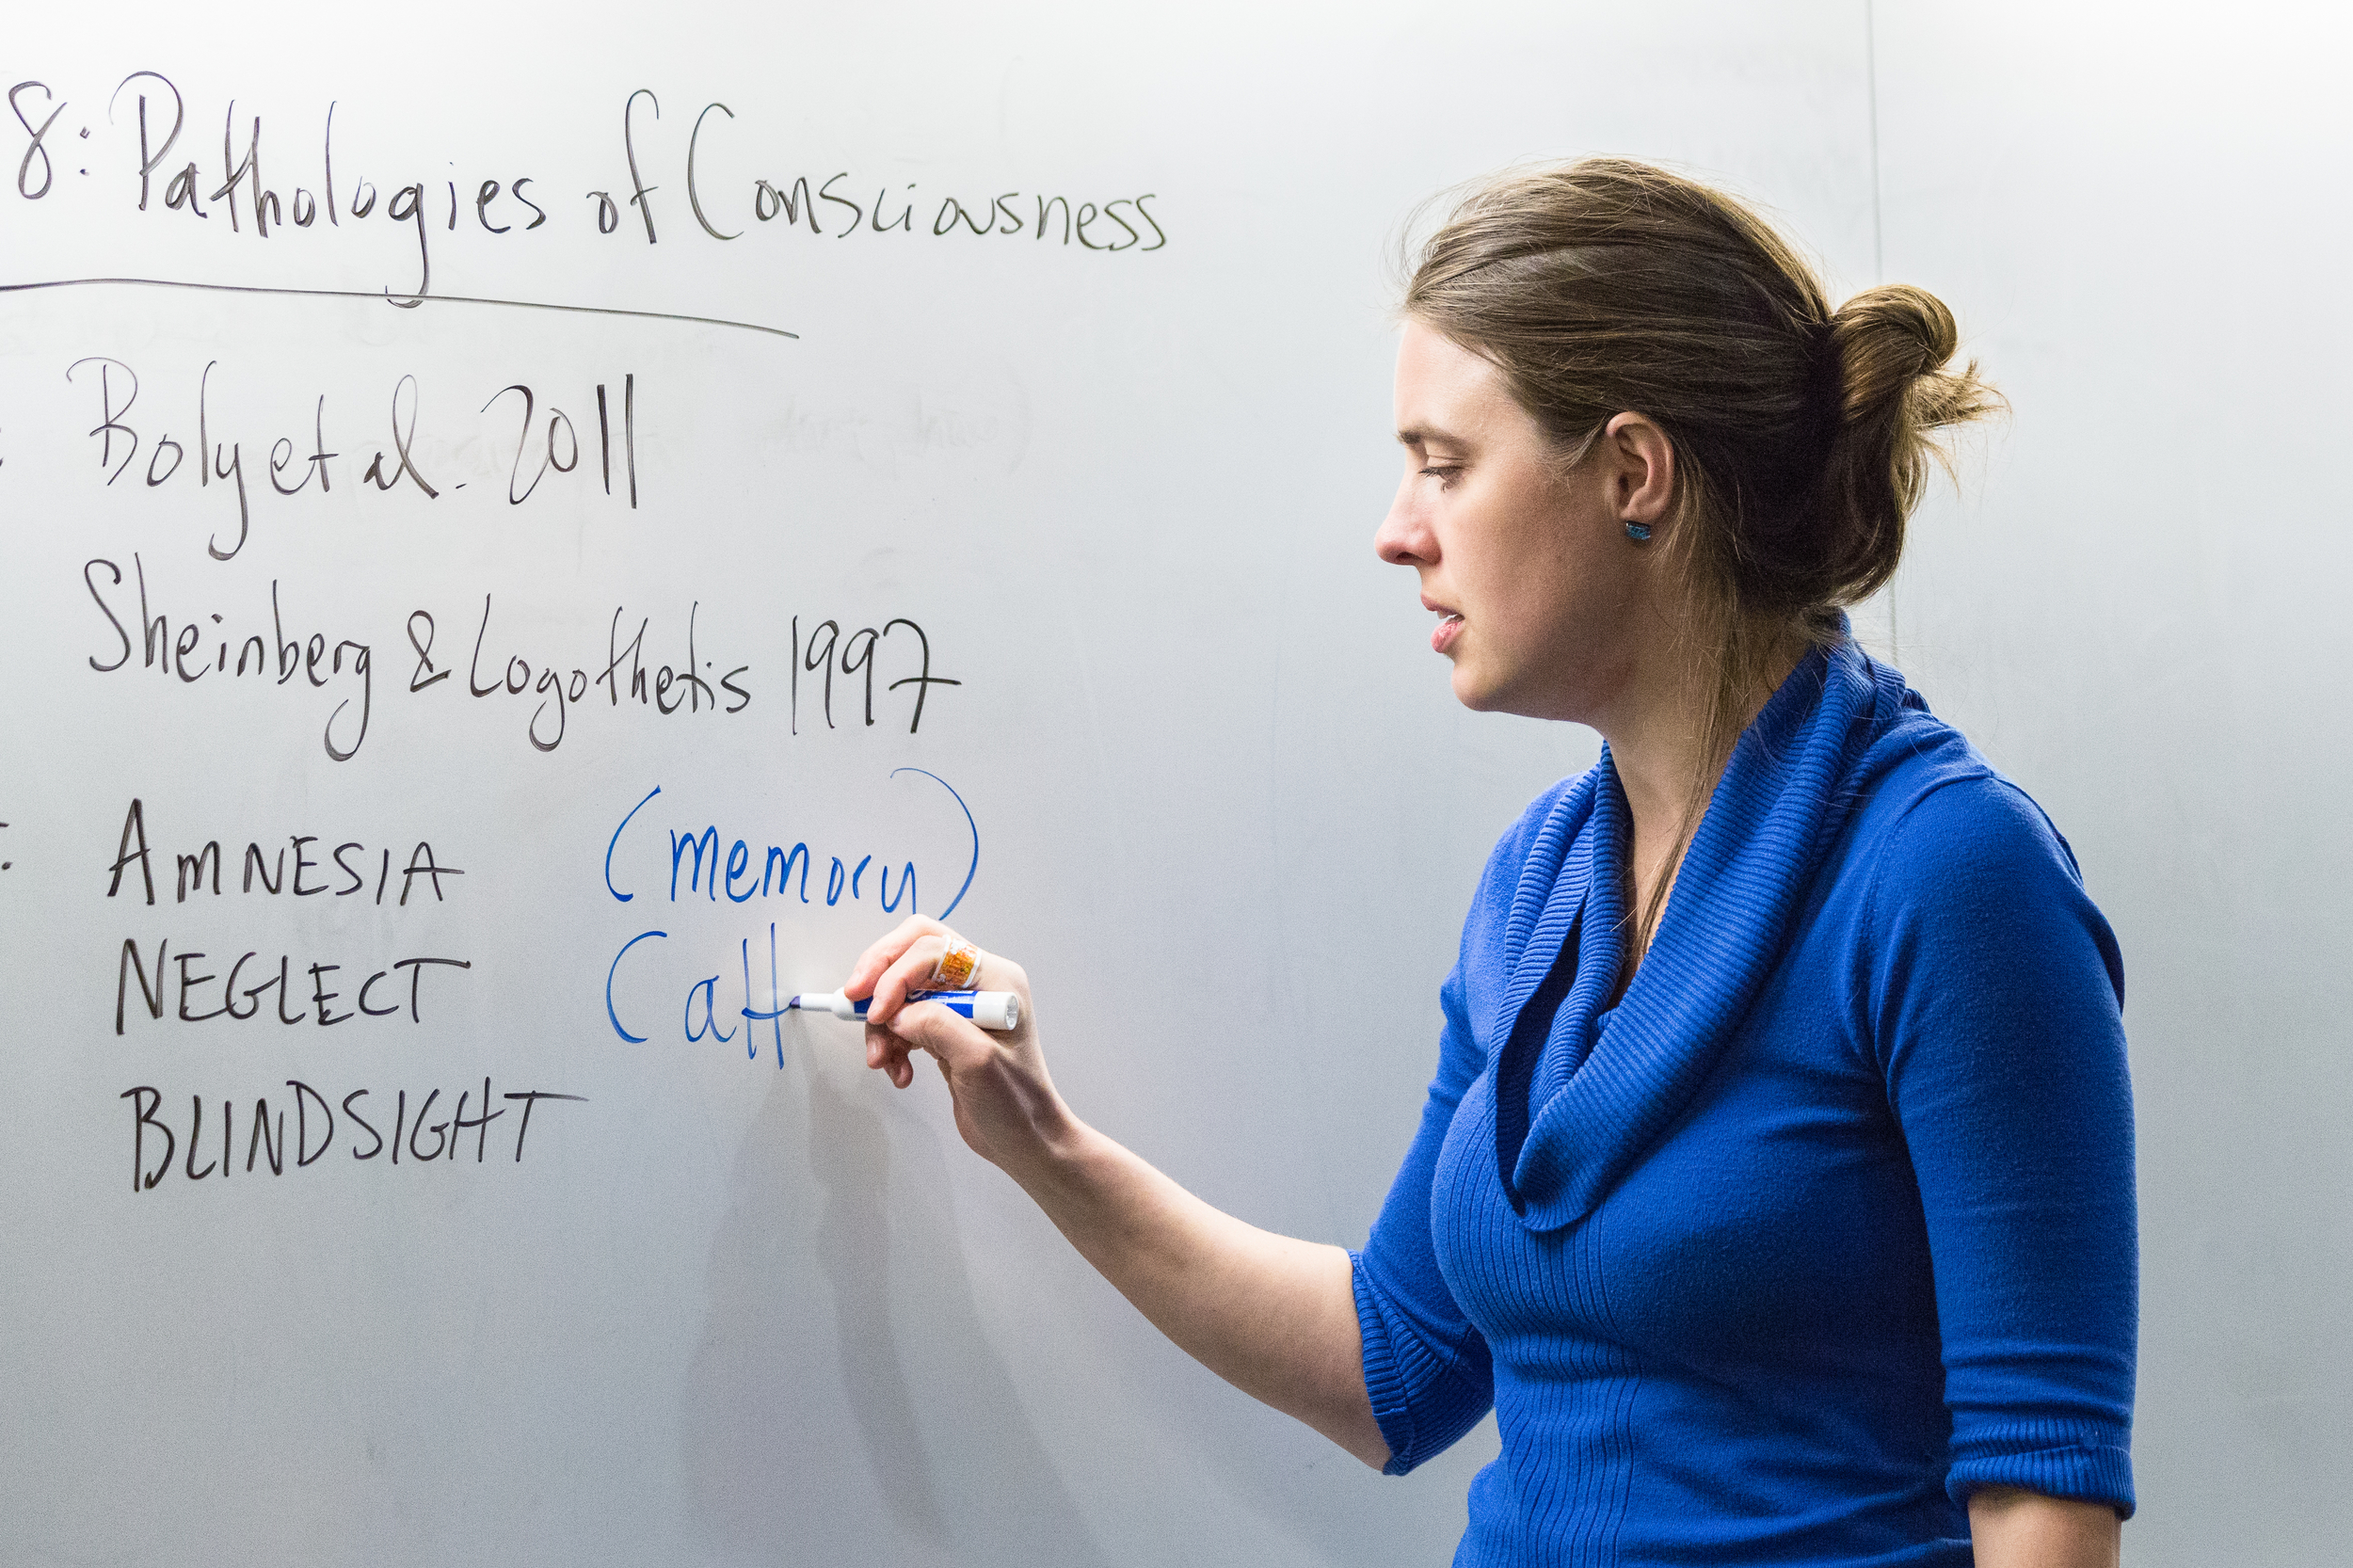 8: Pathologies of Consciousness
Boly et al. 2011
Sheinberg & Logothetis 1997
AMNESIA (memory)
NEGLECT (att
BLINDSIGHT